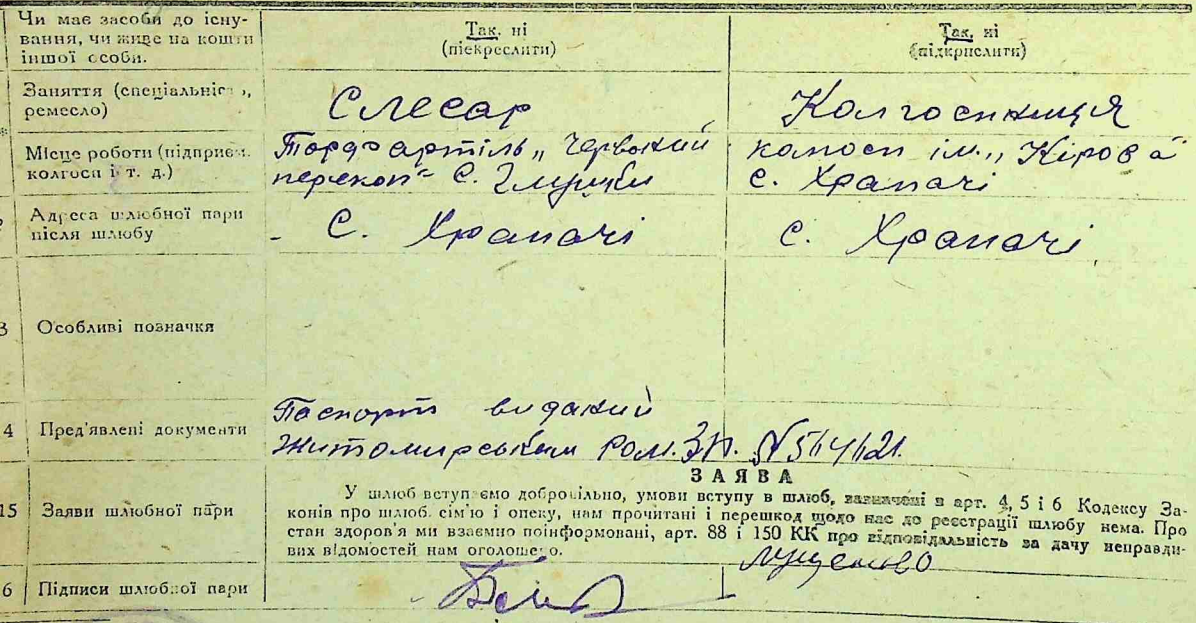 Чи має засоби до існу-
вання, чи живе на кошти
іншої особи.
Так, ні
(піекреслити)
Так, ні
(підкрислити)
Заняття (спеціальніс
ремесло)
Слесар
Колгоспниця
Місце роботи (підприєм.
колгосп і т. д.)
Торфоартіль „Червоний
перекоп“ С.
колгосп ім. „Кірова“
с. Храпачі
Адреса шлюбної пари
після шлюбу
С. Храпачі
с. Храпачі
3 Особливі позначки
4 Пред'явлені документи
Паспорт виданий
Житомирським
15 Заяви шлюбної пари
ЗАЯВА
У шлюб вступаємо добровільно, умови вступу в шлюб, зазначені в арт. 4, 5 і 6 Кодексу За-
конів про шлюб. сім'ю і опеку, нам прочитані і перешкод щодо нас до реєстрації шлюбу нема. Про
стан здоров'я ми взаємно поінформовані, арт. 88 і 150 КК про відповідальність за дачу неправди-
вих відомостей нам оголошено.
6 Підписи шлюбної пари